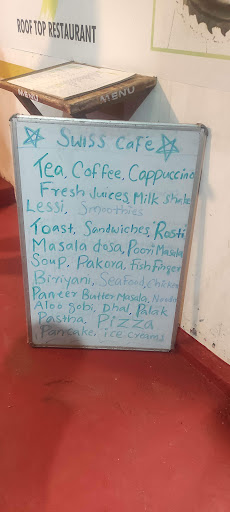 ROOF TOP RESTAURANT
MENU
MENU
Swiss Cafe
Tea, Coffee, Cappuccino
Fresh Juices, Milk shake
Lessi, Smoothies
Toast, Sandwiches, Rosti
Masala dosa, Poori Masala
Soup, Pakora, Fish Finger
Birriyani, Seafood, Chicken
Paneer Butter Masala, Noodle
Aloo gobi, Dhal, Palak
Pastha, Pizza
Pancake, ice creams